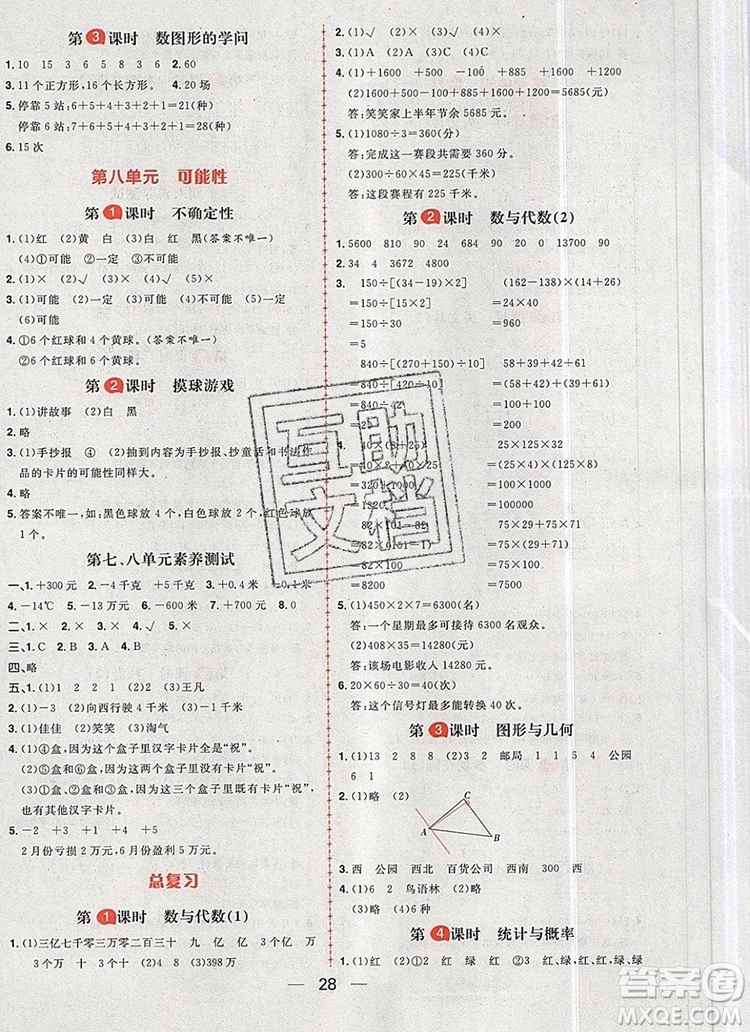 第3课时 数图形的学问
1. 10 15 3 6 10 15 2. 60
3. 11个正方形,16个长方形。 4. 20场
5. 停靠5站:6+5+4+3+2+1=21(种)
停靠6站:7+6+5+4+3+2+1=28(种)
6. 15次
第八单元 可能性
第1课时 不确定性
1. (1)红 (2)黄 白 (3)白 红 黑(答案不唯一)
(4)①可能 ②一定 ③不可能
2. (1)× (2)√ (3)× (4)√
3. (1)可能 (2)一定 (3)可能 (4)不可能 (5)一定
(6)可能
4. ①6个红球和4个黄球。(答案不唯一)
②6个红球和6个黄球。
第2课时 摸球游戏
1. (1)讲故事 (2)白 黑
2. 略
3. (1)手抄报 ④ (2)抽到内容为手抄报、抄童话和书法作
品的卡片的可能性同样大。
4. 略
5. 答案不唯一,如:黑色球放4个,白色球放2个,红色球放
1个。
第七、八单元素养测试
一、1. +300元 2. -4千克 +5千克 3. +0.4米 -0.1米
4. -14℃ 5. -2万元 6. -7 7. +700元 8. -10
二、1. × 2. × 3. × 4. √ 5. × 三、1. C 2. B 3. A
四、略
五、1. (1)1 2 2 1 (2)王凡
2. (1)-5千米 (2)向西行驶4千米 (3)-2千米
3. (1)佳佳 (2)笑笑 (3)淘气
4. (1)④盒,因为这个盒子里汉字卡片全是“祝”。
(2)⑤盒,因为这个盒子里没有汉字卡片“祝”。
(3)①②③⑥盒,因为这几个盒子里既有汉字卡片“祝”,
也有其他汉字卡片。
5. -2 +2 +3 -1 +4 +5
2月份亏损2万元,6月份盈利5万元。
总复习
第1课时 数与代数(1)
1. (1)三亿七千零三万零二百三十 九 亿 亿 3个亿
3个万 3个十 (2)4 8 (3)398万
2. (1)√ (2)× (3)× (4)√ (5)√
3. (1)A (2)A (3)C (4)C
4. (1)+1600 +1500 -100 +885 +1600
(2)1600+1500-100+885+1600+200=5685(元)
答:笑笑家上半年节余5685元。
5. (1)1080÷3=360(分)
答:完成这一赛段共需要360分。
(2)
答:这段赛程有225千米。
第2课时 数与代数(2)
1. 5600 810 90 24 680 20 90 0 13700 90
2. 34 4 3672 4800
3. 150÷[(34-19)×2] (162-62)×(15×16)
=150÷[15×2] =100×240
=150÷30 =24000
=5
840÷[(20+50)×6] 58+29+42+71
=840÷[70×6] =(58+42)+(29+71)
=840÷420 =100+100
=2 =200
4. 40×(8+25) 25×125×4×8
=40×8+40×25 =(25×4)×(125×8)
=320+1000 =100×1000
=1320 =100000
82×101-82 75×101-75
=82×(101-1) =75×(101-1)
=82×100 =75×100
=8200 =7500
5. (1)450×2×7=6300(名)
答:一个星期最多可接待6300名观众。
(2)408×35=14280(元)
答:该场电影收入14280元。
6. 20×60÷30=40(次)
答:这个信号灯最多能转换40次。
第3课时 图形与几何
1. (1)13 2 8 8 (2)3 2 邮局 4 4 公园
6 1
2. (1)略 (2)
A B C
3. 西 公园 西北 百货公司 西南 300 西
4. (1)6 2 鸟语林 (2)略
(3)略 (4)6种
第4课时 统计与概率
1. (1)红 (2)绿 红 (3)红、绿 红、绿 红、绿
28
互助文档
答案圈
MXQE.COM